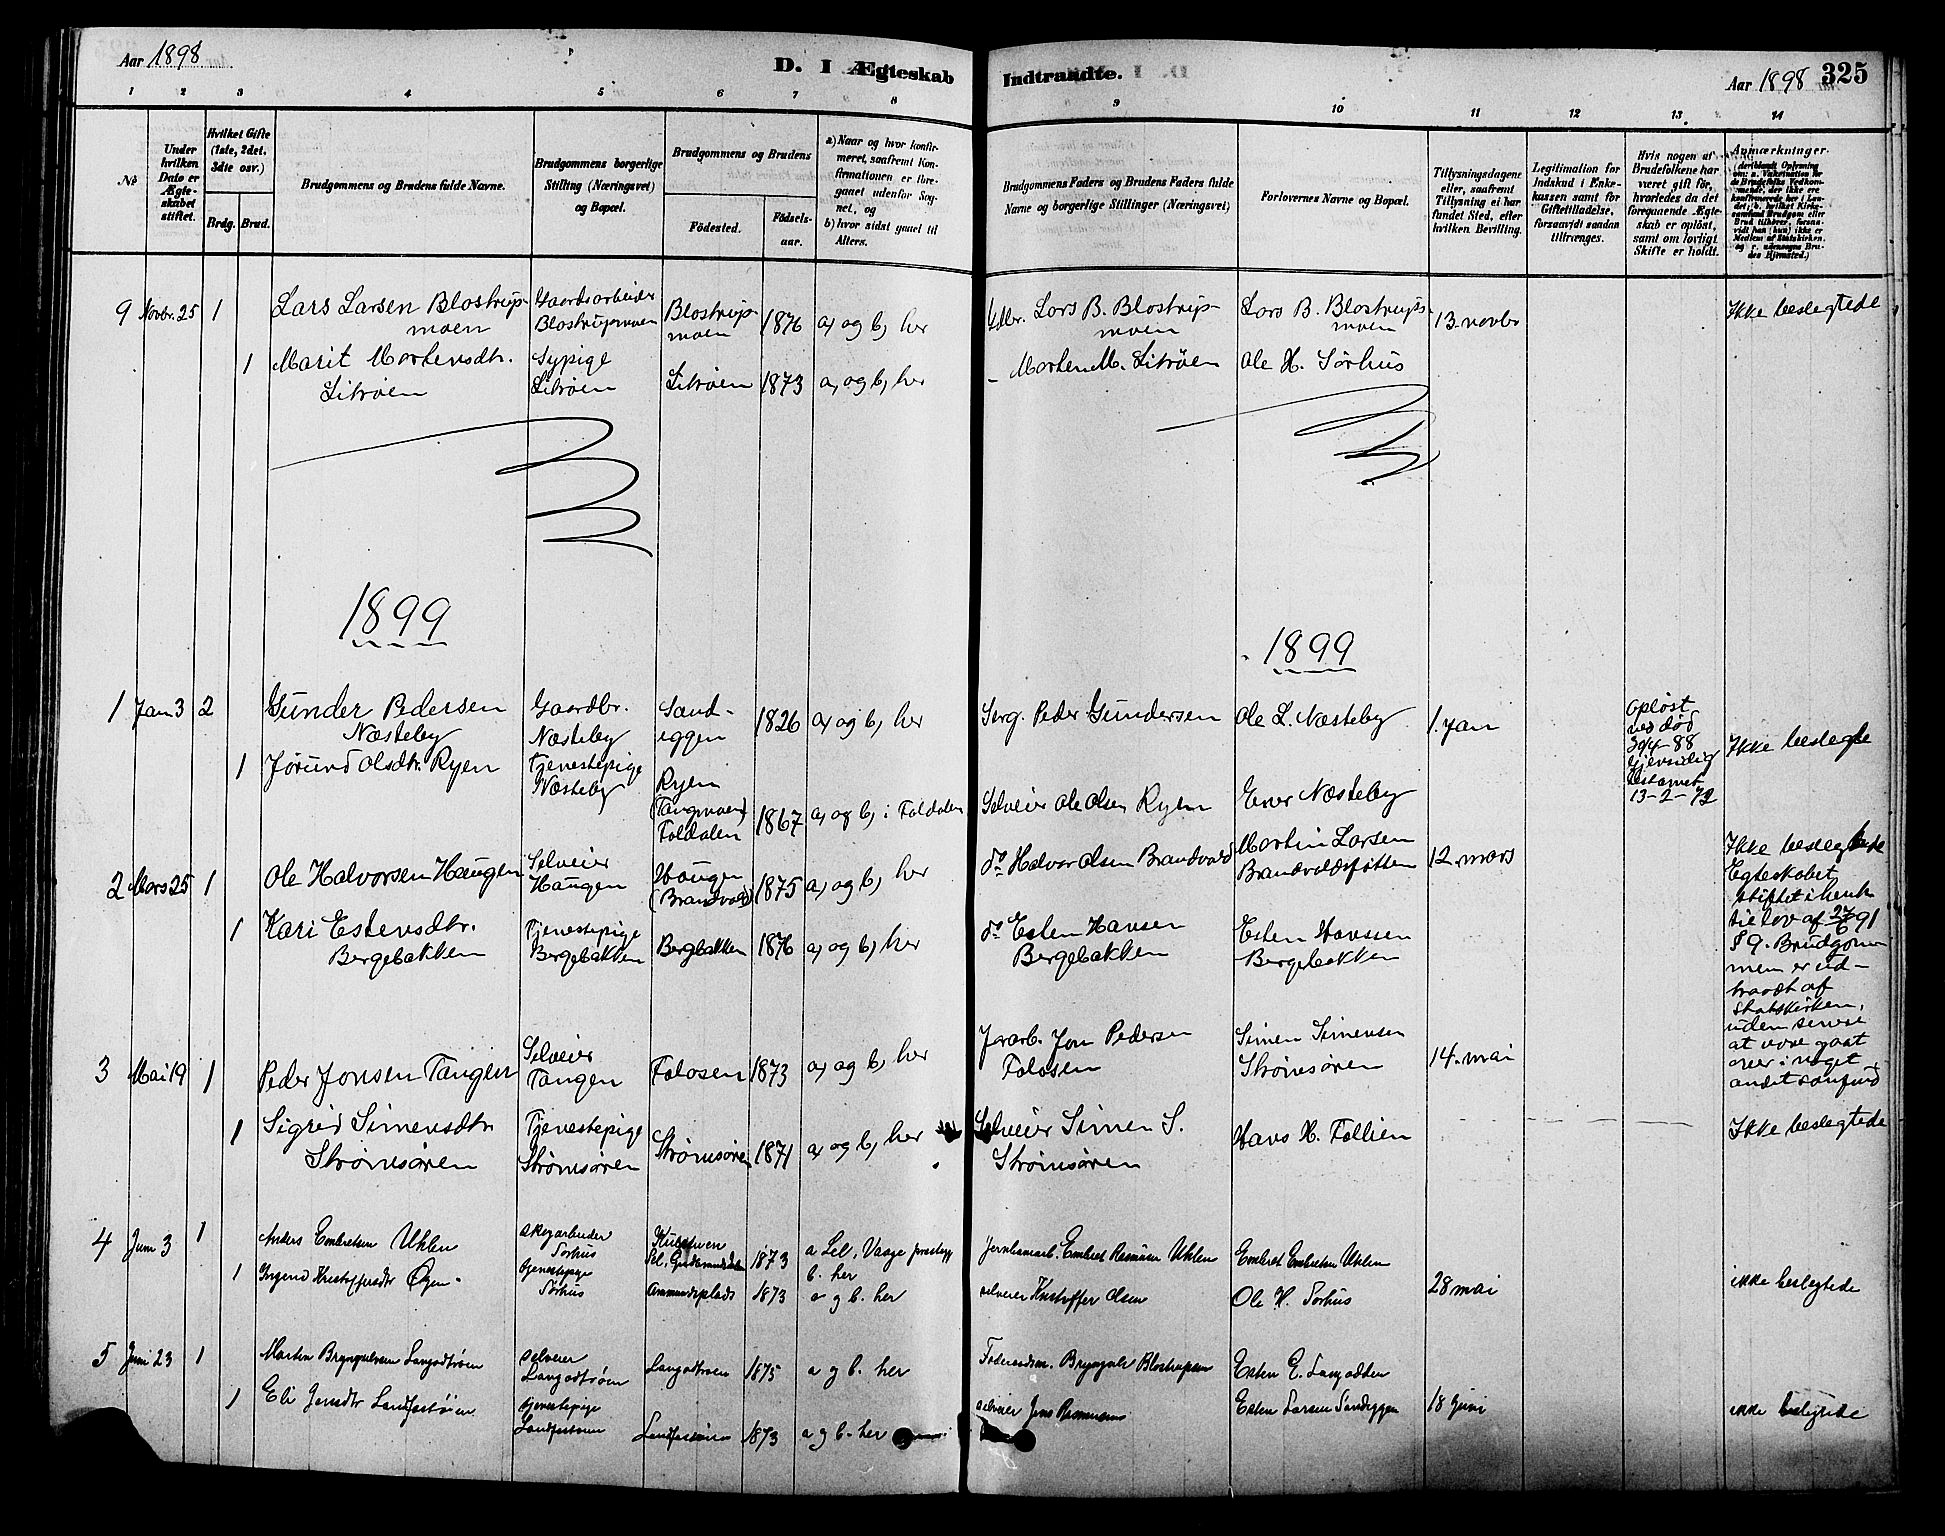 Aar 1898
D. I Ægteskab Indtraadte.
Aar 1898 325
1 2 3 4 5 6 7 8 9 10 11 12 13 14
No
Under hvilken Dato er Ægteskabet stiftet.
Hvilket Gifte (1ste, 2det, 3dte osv.)
Brdg. Brud.
Brudgommens og Brudens fulde Navne.
Brudgommens borgerlige Stilling (Næringsvei) og Bopæl.
Brudgommens og Brudens
Födested. Födselsaar.
a) Naar og hvor konfirmeret, saafremt Konfirmationen er foregaaet udenfor Sognet, og
b) hvor sidst gaaet til Alters.
Brudgommens Faders og Brudens Faders fulde Navne og borgerlige Stillinger (Næringsvei)
Forlovernes Navne og Bopæl.
Tillysningsdagene eller, saafremt Tillysning ei har fundet Sted, efter hvilken Bevilling.
Legitimation for Indskud i Enkekassen samt for Giftetilladelse, forsaavidt saadan tiltrænges.
Hvis nogen af Brudefolkene har været gift för, hvorledes da det foregaaende Ægteskab er oplöst, samt om lovligt Skifte er holdt.
Anmærkninger
9 Novbr. 25 1 Lars Larsen Blostrup- Gaardsarbeider Blostrup- 1876 a, og b, her Gdbr. Lars B. Blostrup- Lars B. Blostrups- 13 novbr Ikke beslegtede
moen Blostrupmoen moen moen moen
1 Marit Mortensdtr. Sypige Litrøen 1873 a, og b, her - Morten M. Litrøen Ole H. Sørhus
Litrøen Litrøen
1899 1899
1 Jan 3 2 Gunder Pedersen Gaardbr. Sand- 1826 a, og b, her Serg. Peder Gundersen Ole L. Næsteby 1. jan opløst
Næsteby Næsteby eggen ved død
30/4-88
1 Jørund Olsdtr. Ryen Tjenestepige Ryen Gjensidig Ikke beslegte
Næsteby (Tangmoen) 1867 a, og b, i Foldalen Selveier Ole Olsen Ryen Ener Næsteby testamet
Foldalen 13-2-72
2 Mars 25 1 Ole Halvorsen Haugen Selveier Haugen 1875 a, og b, her do Halvor Olsen Brandvold Martin Larsen 12. mars Ikke beslegtede
Haugen (Brandvold) Brandvoldsjøtten Egteskabet
stiftet i henh
1 Kari Estensdtr. Tjenestepige Bergbakken 1876 a, og b, her do Esten Hansen Esten Hanssen til lov af 27/6 91
Bergebakken Bergebakken Bergebakken Bergebakken § 9. Brudgom-
men er ud-
traadt af
statskirken,
uden senere
at være gaat
over i noget
andet samfund
3 Mai 19 1 Peder Jonsen Tangen Selveier Folosen 1873 a, og b, her Jernarb. Jon Pedersen Simen Simensen 14. mai
Tangen Folosen Strømsøren
1 Sigrid Simensdtr Tjenestepige Strømsøren 1871 a, og b, her Selveier Simen S. Hans H. Follien Ikke beslegtede
Strømsøren Strømsøren Strømsøren
4 Juni 3 1 Anders Embretsen Uhlen skogarbeider 1873 a Sel, Vaage præstegj Embret Rasmusen Uhlen Embret Embretsen Uhlen
Sørhus b. her
1 Ingerid Kristoffersdtr Øyen tjenestepige Ammundsplads 1873 a og b. her selveier Kristoffer Olsen Ole H. Sørhus 28 mai ikke beslegtede
Sørhus
5 Juni 23 1 Martin Brynjulvsen Langodtrøen selveier Langodtroen 1875 a og b. her Brynjulv Blostrupsen Esten E. Langodden
Langodtrøen
1 Eli Jensdtr Landfastøien tjenestepige 1873 a og b. her selveier Jens Rasmusen Esten Larsen Sandeggen 18 juni ikke beslegtede